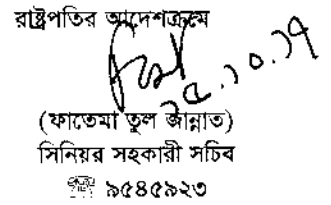 রাষ্ট্রপতির আদেশক্রমে
২৫.১০.১৭
(ফাতেমা তুল জান্নাত)
সিনিয়র সহকারী সচিব
☎ ৯৫৪৫৯২৩